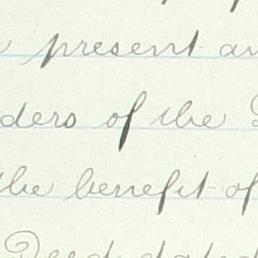 present an
ders of the
the benefit of
Deed dated